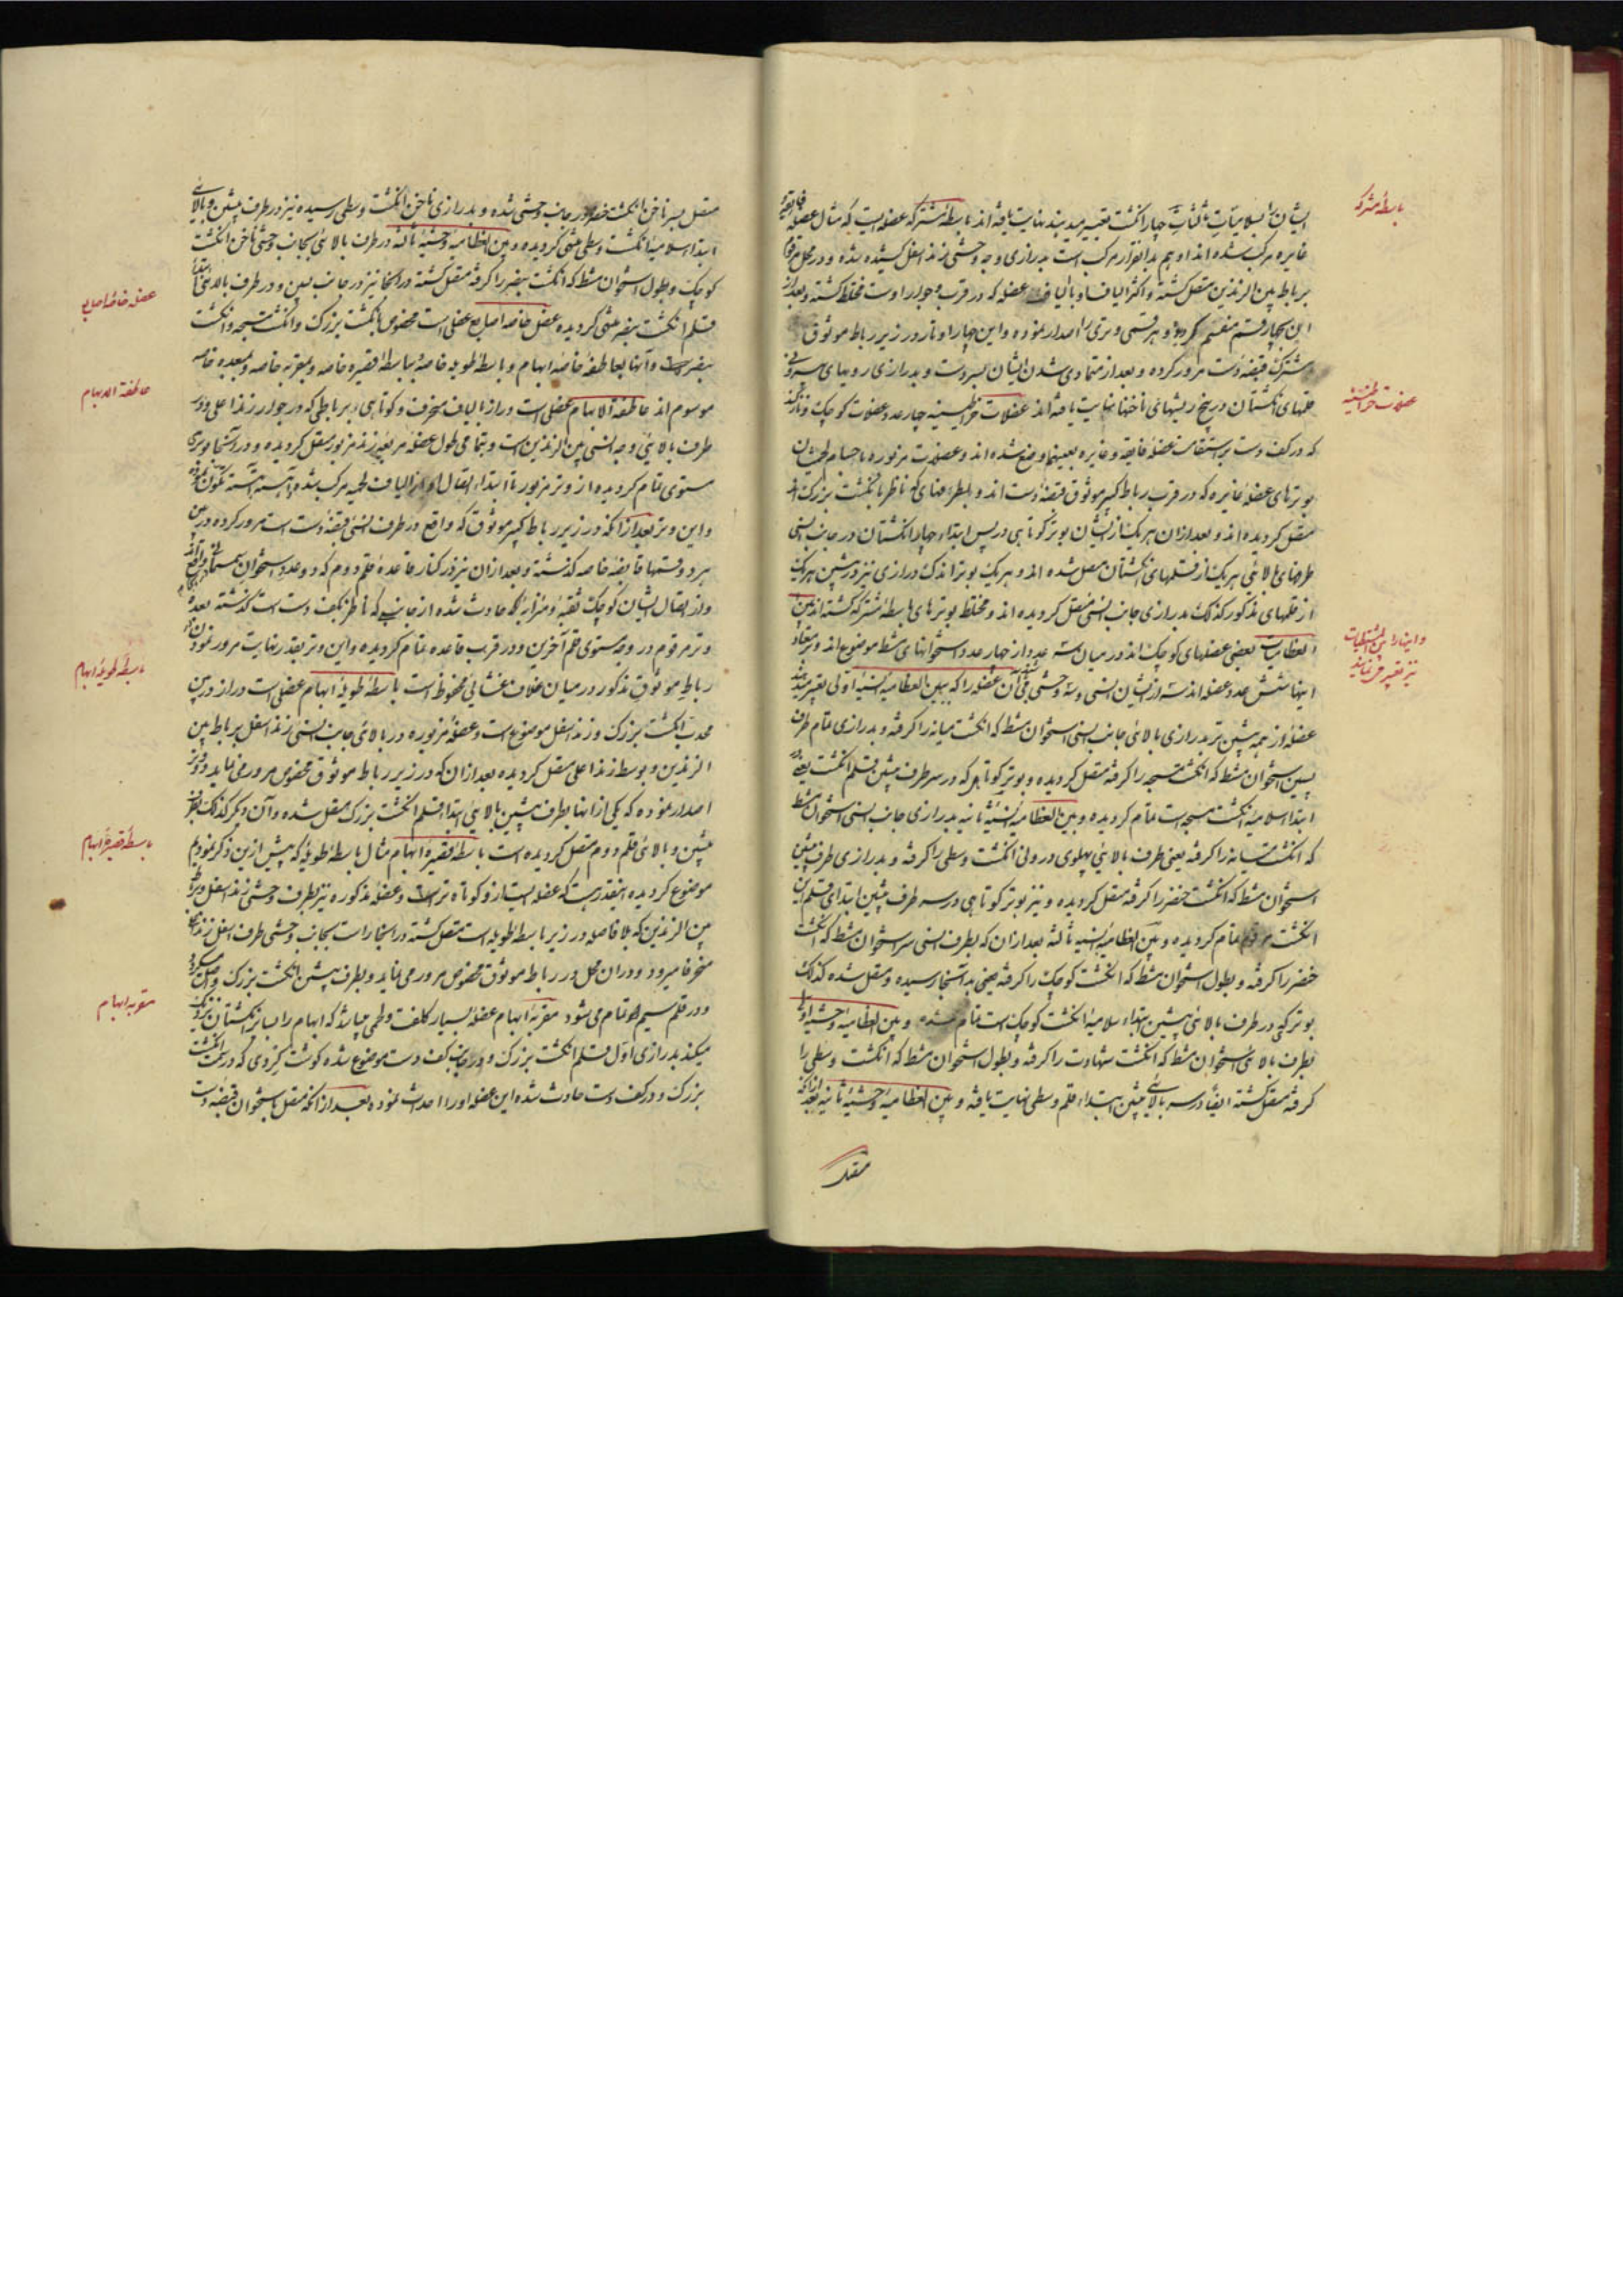 باسطهٔ مشترکه
ایشان را بسلامیات ثالثات چهار انگشت تعبیر میدهند نهایت یافته اند باسطهٔ مشترکه عضله ایست که مثال عضلهٔ
غایره مرکب شده اند او هم بدانقرار مرکب است بدرازی وجه وحشی زند اسفل کشیده شده و در محل
برباط بین الزندین متصل کشته و اکثر الیاف او با الیاف عضله که در قرب و جوار اوست مختلط کشته و بعد از
این بچهار قسم منقسم کردیده و هر قسمی وتری را اصدار نموده و این چهار اوتار در زیر رباط موثوق
مشترک قبضهٔ دست مرور کرده و بعد از متمادی شدن ایشان بسر دست و بدرازی رویهای
عضلات خراطینیه
قلمهای انگشتان در بیخ ریشهای ناخنها نهایت یافته اند عضلات خراطینیه چهار عدد عضلات کوچک و نازکند
که در کف دست بر استقامت عضلهٔ فایقه و غایره بعینها وضع شده اند و عضلات مزبوره با اجسام لحمیشان
بوترهای عضلهٔ غایره که در قرب رباط کبیر موثوق قبضهٔ دست اند و بطرفهای که ناظر بانگشت بزرک اند
متصل کردیده اند و بعد از ان هر یک از ایشان بوتر کوتاهی در پس ابتداء چهار انگشتان در جانب انسی
طرفهای بالائی هر یک از قلمهای انگشتان متصل شده اند و هر یک بوتر اندک درازی نیز در پیشین هر یک
از قلمهای مذکور کذلک بدرازی جانب انسی متصل کردیده اند و مختلط بوترهای باسطهٔ مشترکه کشته اند بین
واینها را بین المشطیات
نیز تعبیر می نمایند
العظامیات بعضی عضلهای کوچک اند در میان سه عدد از چهار عدد استخوانهای مشط موضوع اند و
اینها شش عدد عضله اند سه از ایشان انسی و سه وحشی آن عضله را که ببین العظامیهٔ انسیهٔ اولی تعبیر
عضلهٔ از همه پیشین تر بدرازی بالائی جانب انسی استخوان مشط که انگشت میانه را کرفته و بدرازی تمام طرف
پسین استخوان مشط که انگشت مسبحه را کرفته متصل کردیده و بوتر کوتاهی که در سر طرف پیشین قلم انگشت یعنی
ابتداء سلامیهٔ انگشت مسبحه است تمام کردیده و بین العظامیهٔ انسیهٔ ثانیه بدرازی جانب انسی استخوان مشط
که انگشت میانه را کرفته یعنی طرف بالائی پهلوی درونی انگشت وسطی را کرفته و بدرازی طرف پیشین
استخوان مشط که انگشت خنضر را کرفته متصل کردیده و نیز بوتر کوتاهی در سر طرف پیشین ابتدای قلم این
انگشت تمام کردیده و بین العظامیهٔ انسیهٔ ثالثه بعد از ان که بطرف انسی سر استخوان مشط که انگشت
خنضر را کرفته و بطول استخوان مشط که انگشت کوچک را کرفته یعنی به آنجا رسیده و متصل شده کذلک
بوتر کهی در طرف بالائی پیشین ابتداء سلامیهٔ انگشت کوچک است تمام شده و بین العظامیهٔ وحشیهٔ اولی
بطرف بالای استخوان مشط که انگشت شهادت را کرفته و بطول استخوان مشط که انگشت وسطی را
کرفته متصل کشته ایضا در سر بالائی پیشین ابتداء قلم وسطی نهایت یافته و بین العظامیهٔ وحشیهٔ ثانیه بعد از آنکه
متصل
متصل بسر ناخن انگشت خنضر در جانب وحشی شده و بدرازی ناخن انگشت وسطی رسیده نیز در طرف پیشین و بالائی
ابتداء سلامیهٔ انگشت وسطی منتهی کردیده و بین العظامیهٔ وحشیهٔ ثالثه در طرف بالائی بجانب وحشی ناخن انگشت
کوچک و بطول استخوان مشط که انگشت بنصر را کرفته متصل کشته در آنجا نیز در جانب پسین و در طرف بالائی ابتداء
عضلهٔ خاصهٔ اصابع
قلم انگشت بنصر منتهی کردیده عضل خاصهٔ اصابع عضلی است مخصوص بانگشت بزرک و انگشت مسبحه و انگشت
بنصر است و آنها بعاطفهٔ خاصهٔ ابهام و باسطهٔ طویلهٔ خاصه و بباسطهٔ قصیرهٔ خاصه و بمقربهٔ خاصه و بمبعدهٔ خاصه
عاطفة الابهام
موسوم اند عاطفة الابهام عضلی است دراز با الیاف منحرف و کوتاهی و برباطی که در جوار زند اعلی و در
طرف بالائی وجه انسی بین الزندین است و بتمامی طول عضلهٔ مربعهٔ زند مزبور متصل کردیده و در انتها بوتری
مستوی تمام کردیده از وتر مزبور تا ابتداء اتصال او از الیافت لحمیه مرکب شده آهسته آهسته
واین وتر بعد از آنکه در زیر رباط کبیر موثوق که واقع در طرف انسی قبضهٔ دست است مرور کرده در بین
هر دو قسمتهای قابضهٔ خاصه کذشته و بعد از ان نیز در کنار قاعدهٔ قلم دوم که دو عدد استخوان سمسمانی
واز اتصال ایشان کوچک ثقبه و منزابه که حادث شده از جانبی که ناظر بکف دست است کذشته بعده
وتر مرقوم در وجه مستوی قلم آخرین و در قرب قاعده تمام کردیده و این وتر بقدر نهایت مرور نمودن
باسطهٔ طویلهٔ ابهام
رباط موثوق مذکور در میان غلاف غشائی محفوظ است باسطهٔ طویلهٔ ابهام عضلی است دراز در پس
محدب انگشت بزرک و زند اسفل موضوع است و عضلهٔ مزبوره در بالائی جانب انسی زند اسفل برباط بین
الزندین و بوسط زند اعلی متصل کردیده بعد از ان که در زیر رباط موثوق مخصوص مرور می نماید دو وتر
اصدار نموده که یکی از انها بطرف پیشین بالائی ابتداء قلم انگشت بزرک متصل شده و آن دیکر کذلک بطرف
باسطهٔ قصیرهٔ ابهام
پیشین و بالائی قلم دوم متصل کردیده است باسطهٔ قصیرهٔ ابهام مثال باسطهٔ طویله که پیش ازین ذکر نمودیم
موضوع کردیده اینقدر هست که عضله بسیار و کوتاه تر است و عضلهٔ مذکوره نیز بطرف وحشی زند اسفل و برباط
بین الزندین که بلا فاصله در زیر باسطهٔ طویله است متصل کشته در اینجا راست بجانب وحشی طرف اسفل زند اعلی
منحرفا میرود و در ان محل در رباط موثوق مخصوص مرور می نماید و بطرف پیشین انگشت بزرک واصل میکردد
مقربهٔ ابهام
و در قلم سیم او تمام می شود مقربهٔ ابهام عضلهٔ بسیار کلفت و لحمی میباشد که ابهام را بسایر انگشتان نزدیک
میکند بدرازی اول قلم انگشت بزرک و در جانب کف دست موضوع شده کوشت کردی که در تحت انگشت
بزرک و در کف دست حادث شده این عضله او را احداث نموده بعد از آنکه متصل باستخوان قبضهٔ دست